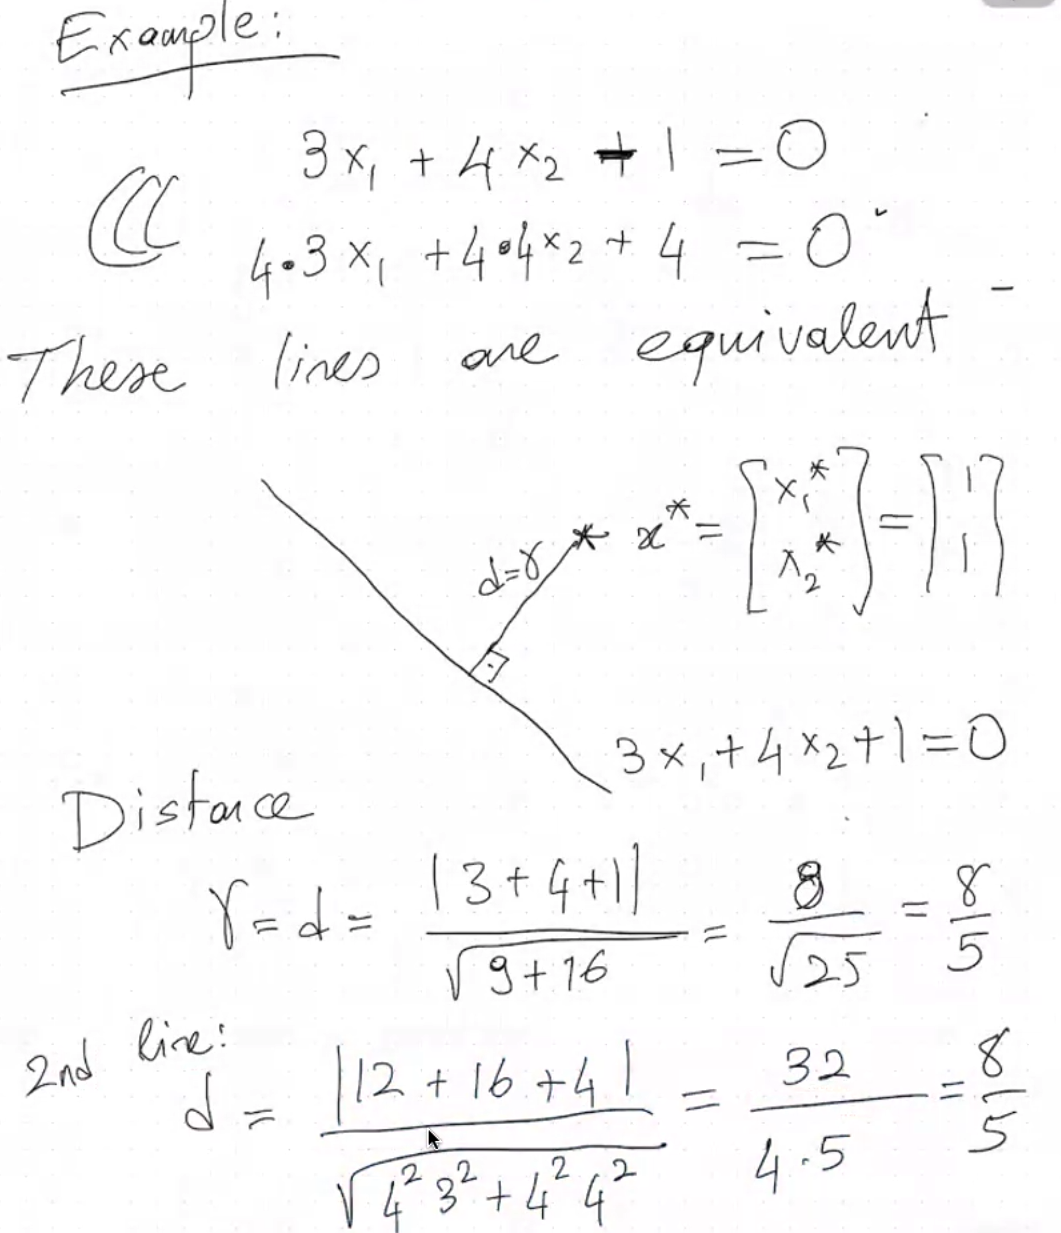 Example:
3x₁ + 4x₂ + 1 = 0
4•3x₁ + 4•4x₂ + 4 = 0
These lines are equivalent
d=γ
x* = [x₁* x₂*] = [1 1]
3x₁+4x₂+1=0
Distance
γ = d = |3+4+1| / √9+16 = 8 / √25 = 8/5
2nd line:
d = |12+16+4| / √4²3²+4²4² = 32 / 4·5 = 8/5